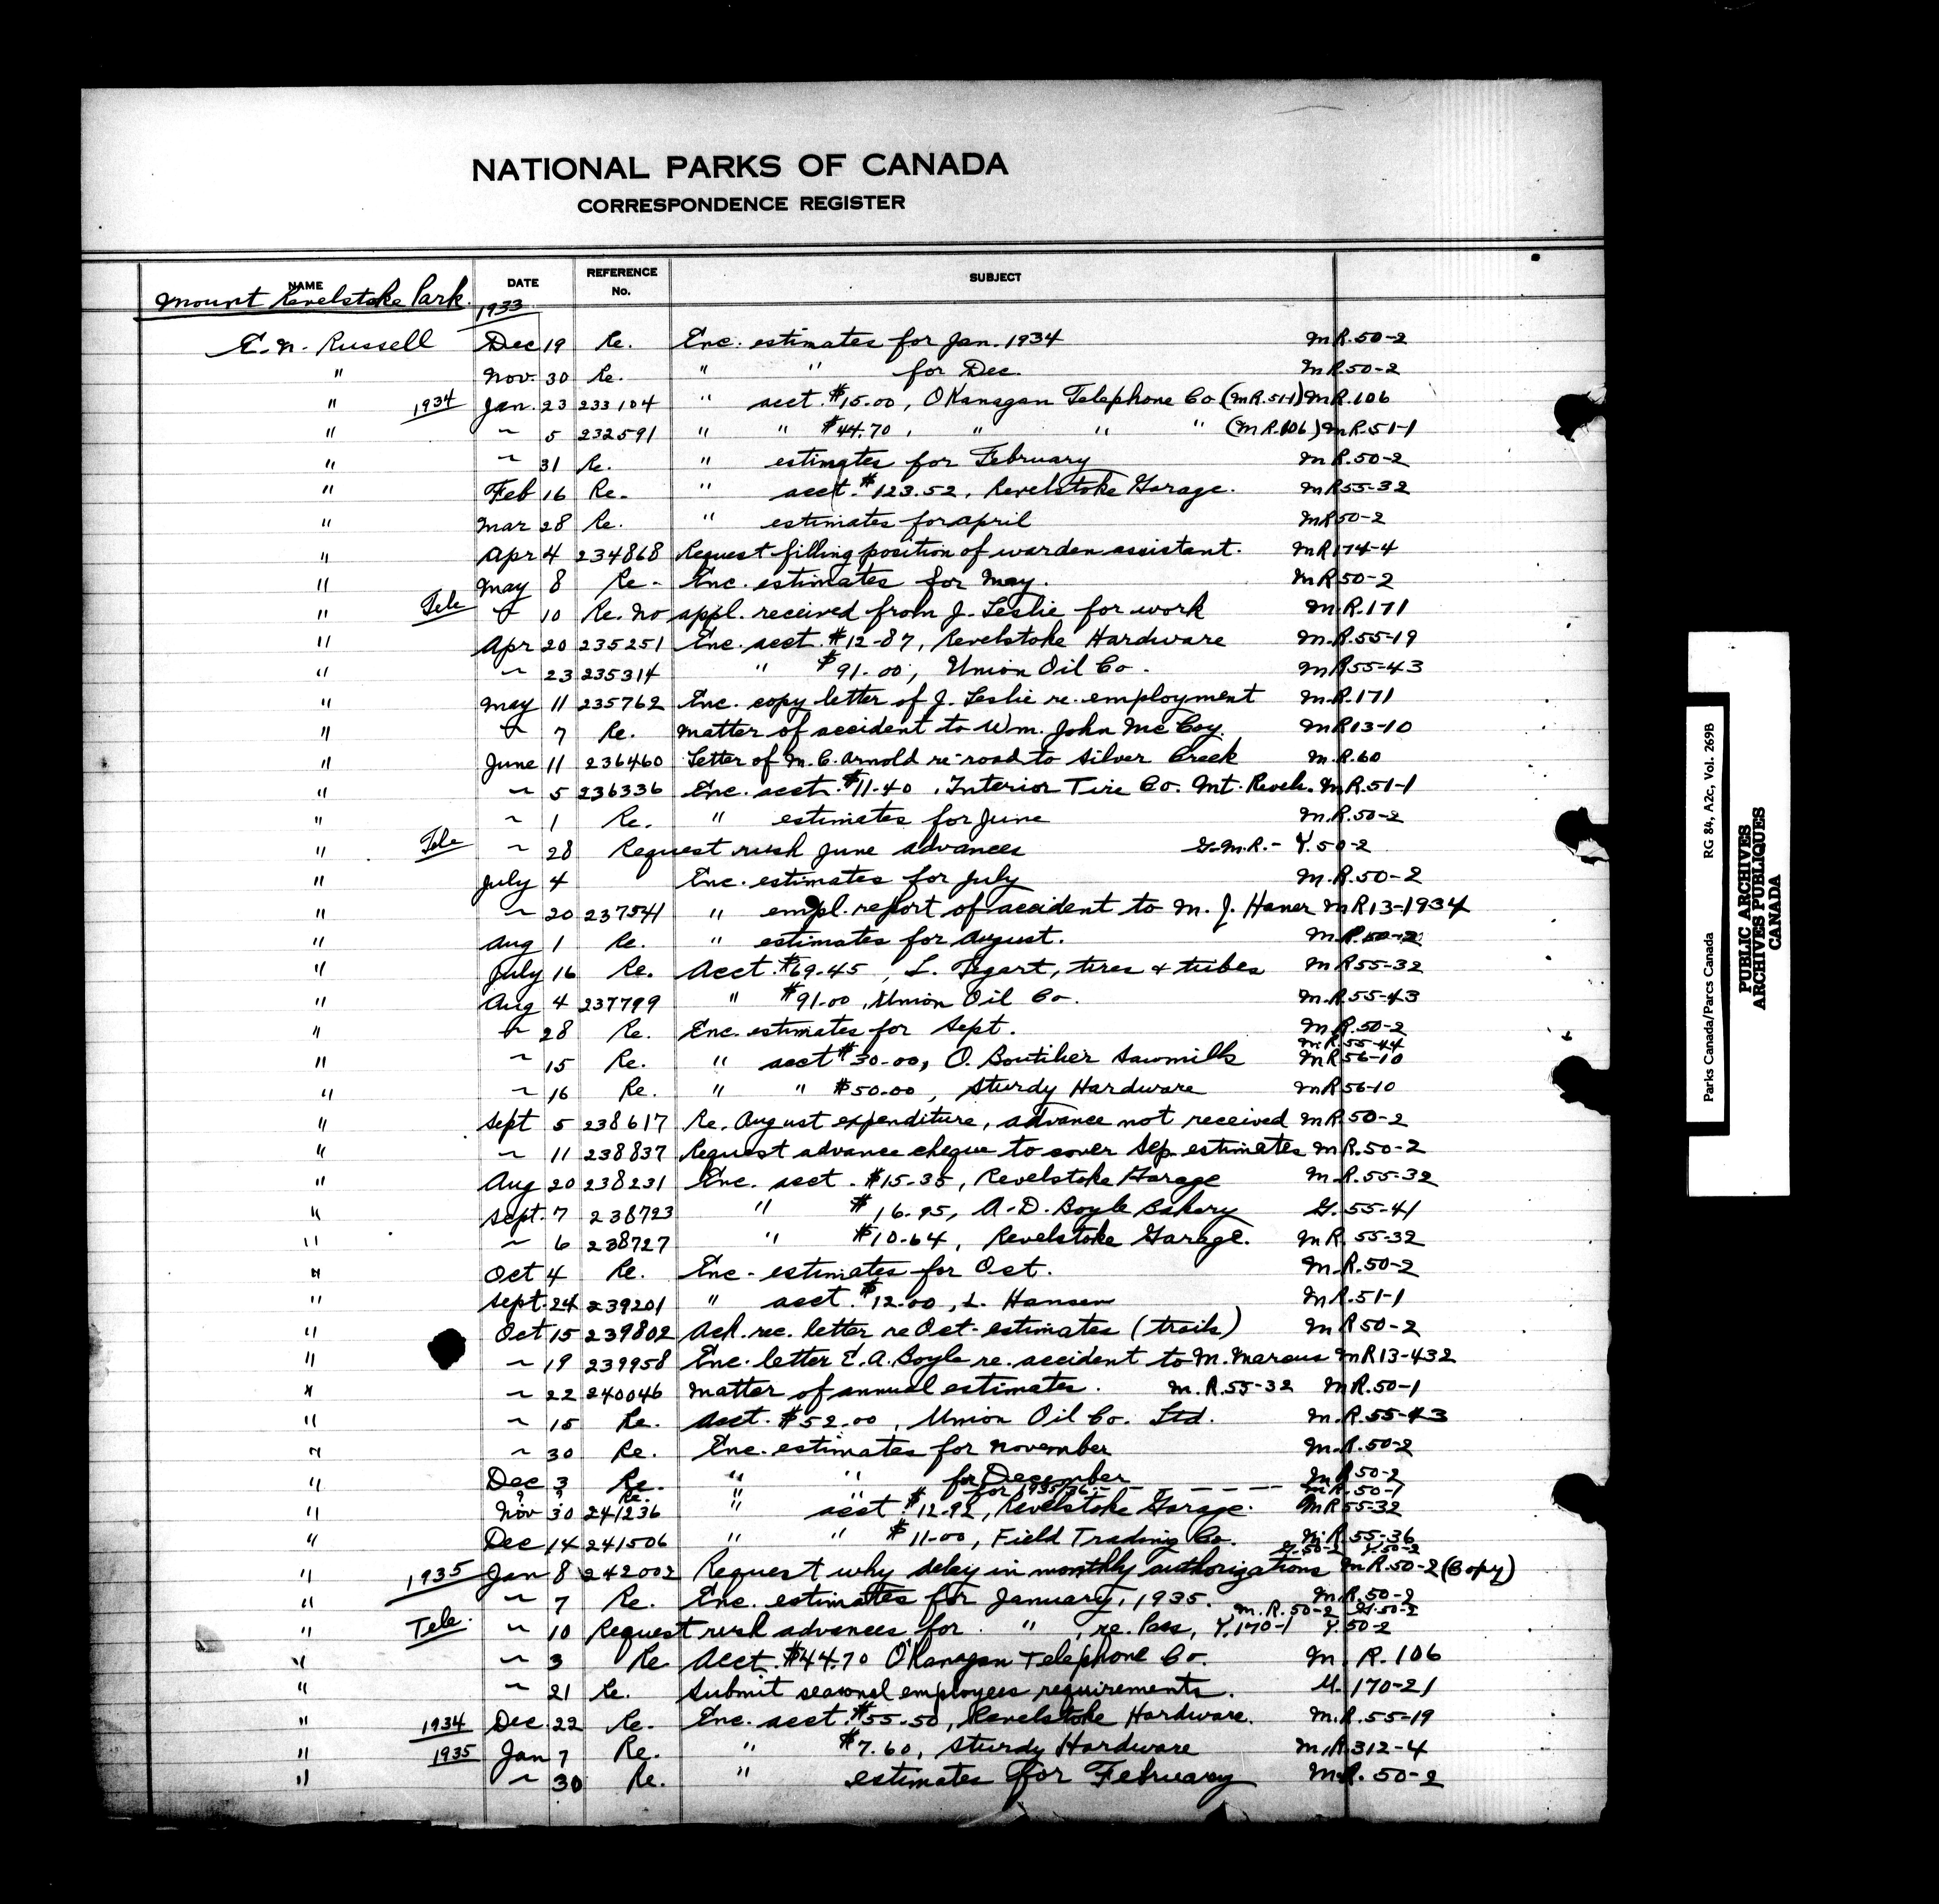 NATIONAL PARKS OF CANADA
CORRESPONDENCE REGISTER
NAME DATE REFERENCE No. SUBJECT
Mount Revelstoke Park. 1933
E.N. Russell Dec 19 Re. Enc. estimates for Jan. 1934 M.R.50-2
" Nov. 30 Re. " " for Dec. M.R.50-2
" 1934 Jan. 23 233104 " acct. $15.00, OKanagan Telephone Co (M.R.51-1) M.R.106
" ~ 5 232591 " " $44.70, " " " (M.R.106) M.R.51-1
" ~ 31 Re. " estimates for February M.R.50-2
" Feb 16 Re. " acct. $123.52, Revelstoke Garage. M.R55-32
" Mar 28 Re. " estimates for April M.R50-2
" Apr 4 234868 Request filling position of warden assistant. M.R174-4
" May 8 Re - Enc. estimates for May. M.R50-2
" Tele ~ 10 Re. No appl. received from J. Leslie for work M.R.171
" Apr 20 235251 Enc. acct. $12-87, Revelstoke Hardware M.R.55-19
" ~ 23 235314 " $91.00, Union Oil Co. M.R55-43
" May 11 235762 Enc. copy letter of J. Leslie re. employment M.R.171
" ~ 7 Re. Matter of accident to Wm. John McCoy. M.R13-10
" June 11 236460 Letter of M.C. Arnold re-road to Silver Creek M.R.60
" ~ 5 236336 Enc. acct. $11-40, Interior Tire Co. Mt. Revels. M.R.51-1
" ~ 1 Re. " estimates for June M.R.50-2
" Tele ~ 28 Request rush June advances G-M.R.- Y.50-2
" July 4 Enc. estimates for July M.R.50-2
" ~ 20 237541 " empl. report of accident to M. J. Haner M.R13-1934
" Aug 1 Re. " estimates for August. M.R.50-2
" July 16 Re. Acct. $69.45, L. Tegart, tires & tubes M.R55-32
" Aug 4 237799 " $91.00, Union Oil Co. M.R.55-43
" ~ 28 Re. Enc. estimates for Sept. M.R.50-2
M.R.55-44
" ~ 15 Re. " acct $30-00, O. Boutilier Sawmills M.R56-10
" ~ 16 Re. " " $50.00, Sturdy Hardware M.R56-10
" Sept 5 238617 Re. August expenditure, advance not received M.R.50-2
" ~ 11 238837 Request advance cheque to cover Sep. estimates M.R.50-2
" Aug 20 238231 Enc. acct. $15-35, Revelstoke Garage M.R.55-32
" Sept. 7 238723 " $16-95, A.D. Boyle Bakery G.55-41
" ~ 6 238727 " $10-64, Revelstoke Garage. M.R.55-32
" Oct 4 Re. Enc - estimates for Oct. M.R.50-2
" Sept. 24 239201 " acct. $12.00, L. Hansen M.R.51-1
" Oct 15 239802 Ack. rec. letter re Oct- estimates (trails) M.R50-2
" ~ 19 239958 Enc. letter E.A. Boyle re. accident to M. Marcus M.R13-432
" ~ 22 240046 Matter of annual estimates. M.R.55-32 M.R.50-1
" ~ 15 Re. Acct. $52.00, Union Oil Co. Ltd. M.R.55-43
" ~ 30 Re. Enc. estimates for November M.R.50-2
" Dec 3 Re. " " for December M.R50-2
? ? Re. " for 1935/36. - - - - M.R.50-1
" Nov 30 241236 " acct $12-92, Revelstoke Garage. M.R55-32
" Dec 14 241506 " " $11-00, Field Trading Co. M.R.55-36
G.50-2 Y.50-2
" 1935 Jan 8 242002 Request why delay in monthly authorizations M.R.50-2 (Copy)
" ~ 7 Re. Enc. estimates for January, 1935. M.R.50-2
M.R.50-2 G.50-2
" Tele. ~ 10 Request rush advances for " , re. Pass, Y.170-1 Y.50-2
" ~ 3 Re Acct. $44.70 O'Kanagan Telephone Co. M.R.106
" ~ 21 Re. Submit seasonal employees requirements. U.170-21
" 1934 Dec. 22 Re. Enc. acct. $55-50, Revelstoke Hardware. M.R.55-19
" 1935 Jan 7 Re. " $7.60, Sturdy Hardware M.R.312-4
" ~ 30 Re. " estimates for February M.R.50-2
Parks Canada/Parcs Canada RG 84, A2c, Vol. 269B
PUBLIC ARCHIVES
ARCHIVES PUBLIQUES
CANADA